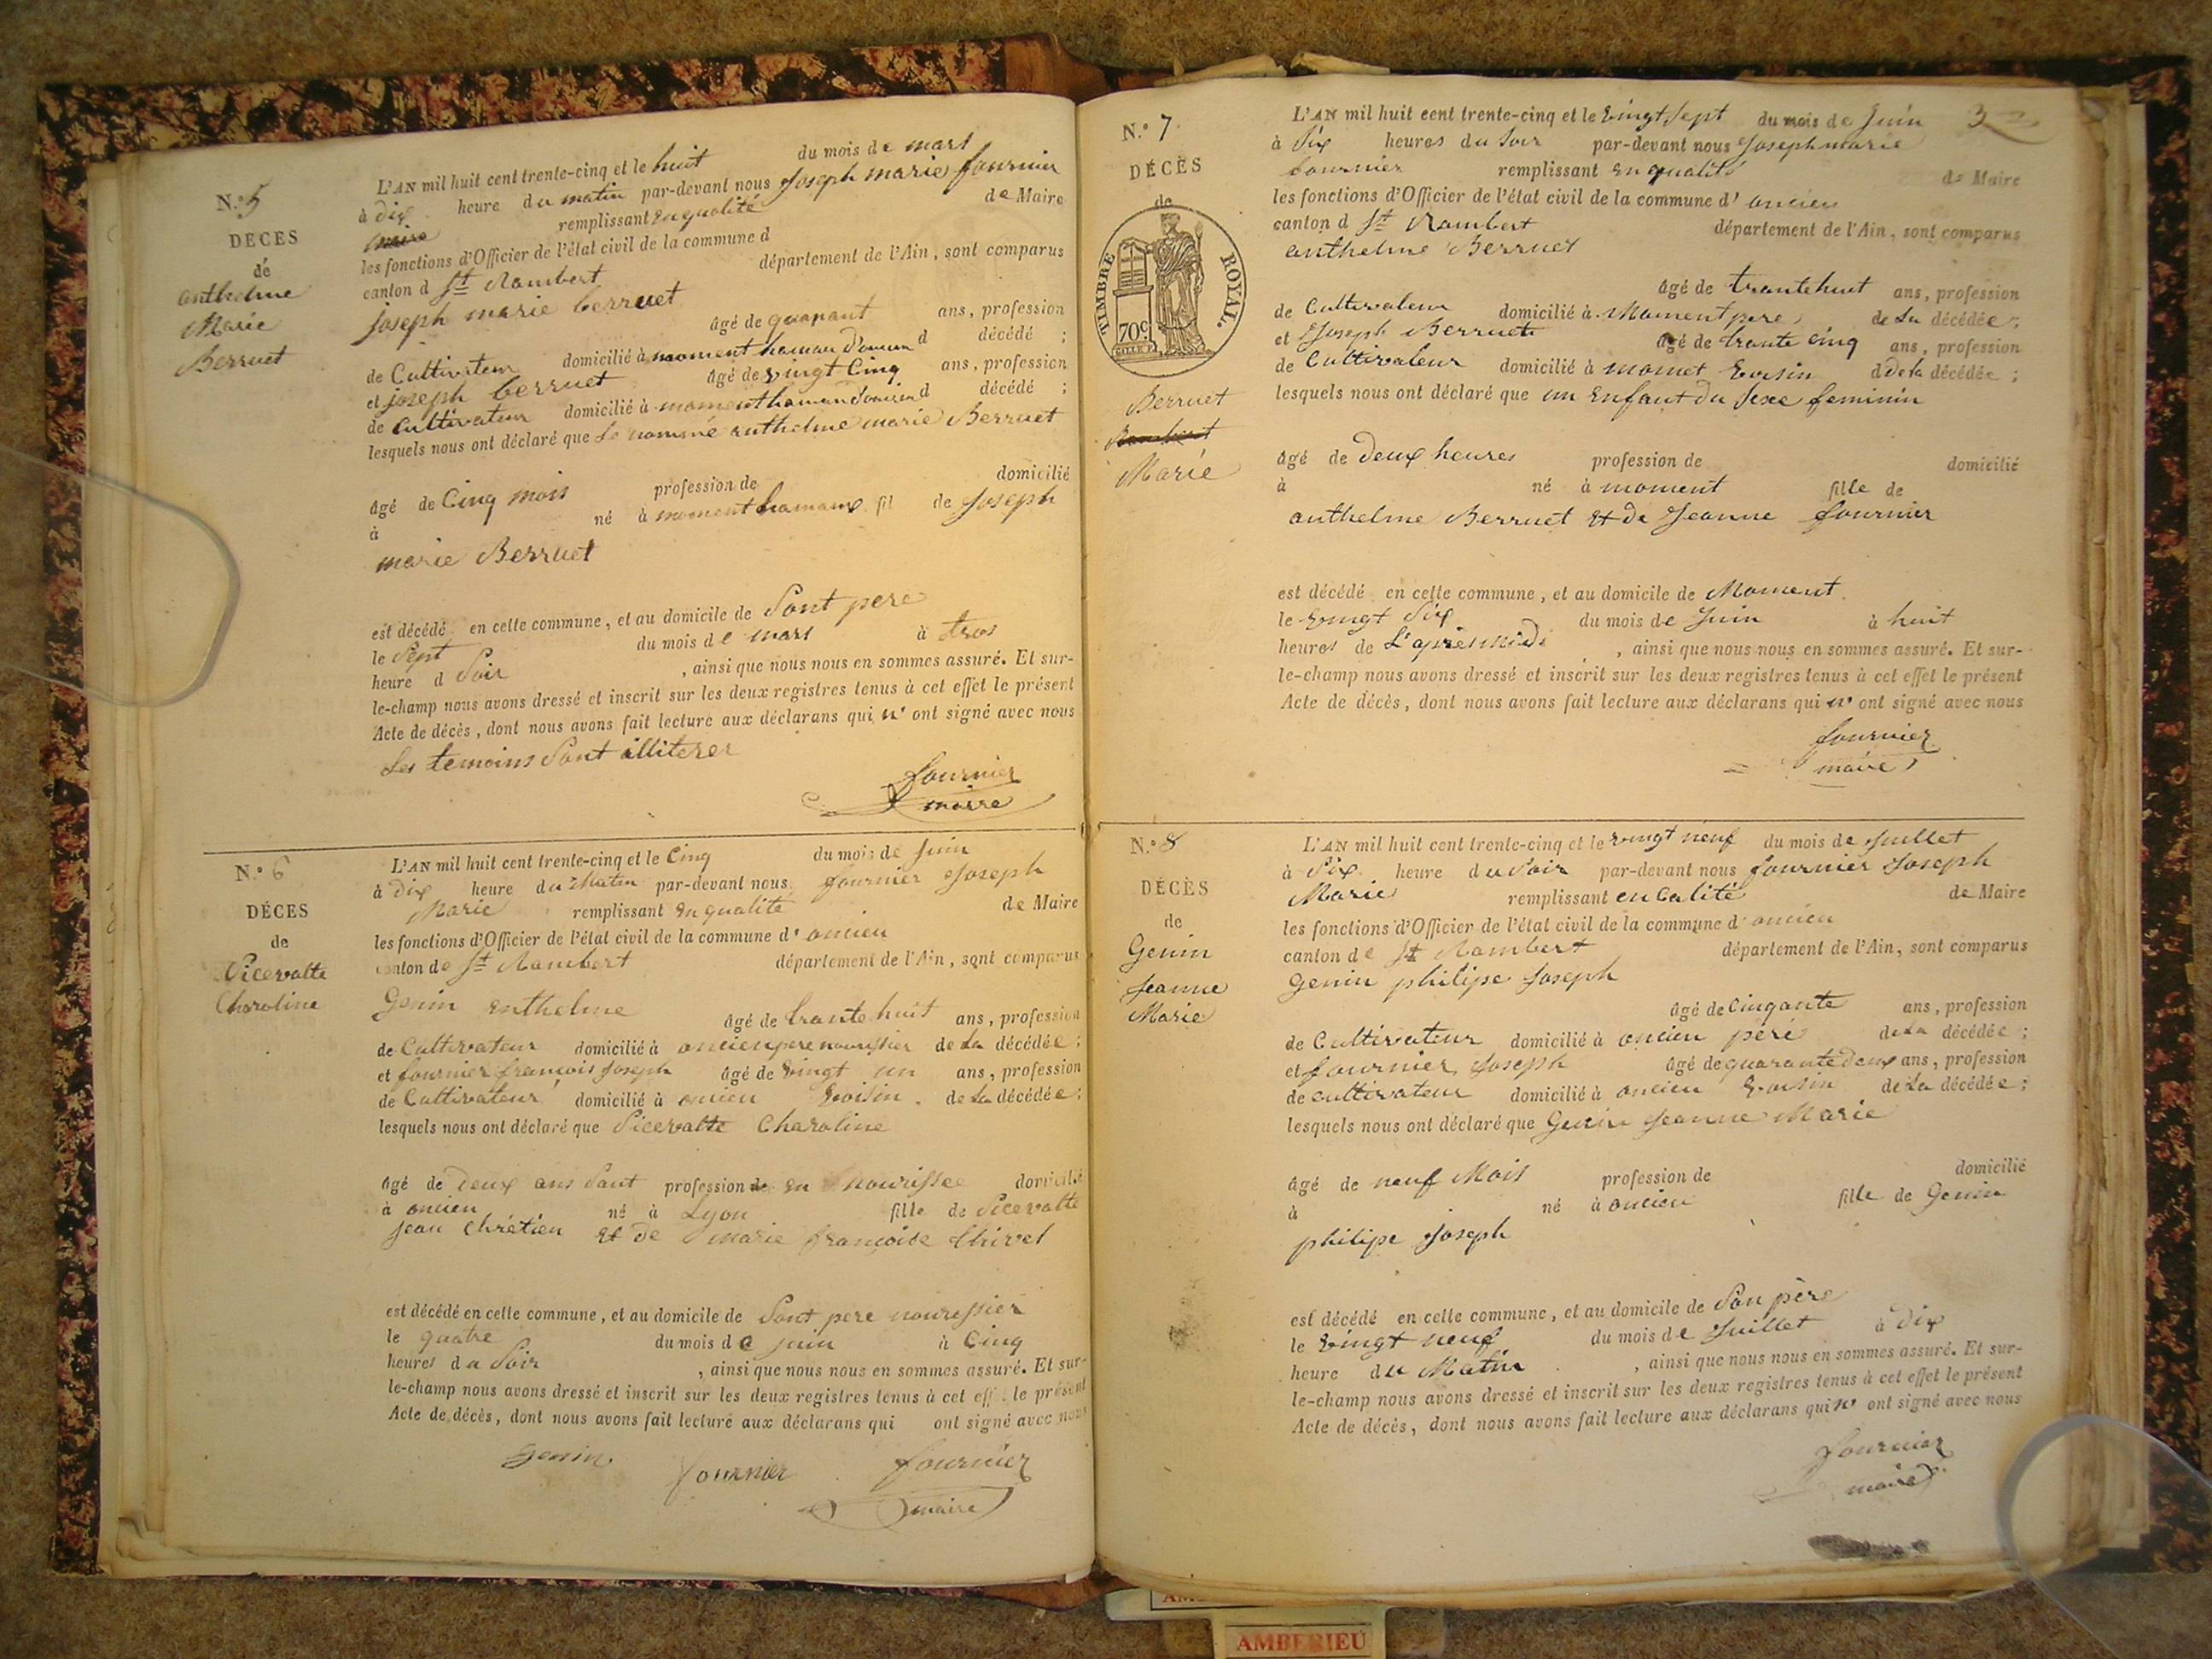 N.° 5
DECES
de
anthelme
Marie
Berruet
L'AN mil huit cent trente-cinq et le huit du mois de mars
à dix heure du matin par-devant nous Joseph marie fournier
maire remplissant en qualité de Maire
les fonctions d'Officier de l'état civil de la commune d
canton d St Rambert département de l'Ain, sont comparus
joseph marie berruet
âgé de quarant ans, profession
de Cultivateur domicilié à moment hamau d'oncien d décédé ;
et joseph berruet âgé de vingt Cinq ans, profession
de Cultivateur domicilié à moment hamau d'oncien d décédé ;
lesquels nous ont déclaré que Le nommé anthelme marie Berruet
âgé de Cinq mois profession de domicilié
à né à moment hamaux fil de Joseph
marie Berruet
est décédé en cette commune, et au domicile de Sont pere
le Sept du mois de mars à trois
heure d Soir , ainsi que nous nous en sommes assuré. Et sur-
le-champ nous avons dressé et inscrit sur les deux registres tenus à cet effet le présent
Acte de décès, dont nous avons fait lecture aux déclarans qui n' ont signé avec nous
Les temoins Sont illiterer
fournier
maire
N.° 6
DÉCES
de
Picevatte
Charoline
L'AN mil huit cent trente-cinq et le Cinq du mois de Juin
à dix heure du Matin par-devant nous fournier Joseph
Marie remplissant En qualité de Maire
les fonctions d'Officier de l'état civil de la commune d' oncien
canton de St Rambert département de l'Ain, sont comparus
Genin anthelme
âgé de trante huit ans, profession
de Cultivateur domicilié à oncien pere nourissier de La décédée ;
et fournier françois Joseph âgé de vingt un ans, profession
de Cultivateur domicilié à oncien Voisin de La décédée ;
lesquels nous ont déclaré que Picevatte Charoline
âgé de deux ans Sant profession de En nourissee domicilié
à oncien né à Lyon fille de Picevatte
Jean Chrétien Et de marie françoise Chivet
est décédé en cette commune, et au domicile de Sont pere nourissier
le quatre du mois de juin à Cinq
heures du Soir , ainsi que nous nous en sommes assuré. Et sur-
le-champ nous avons dressé et inscrit sur les deux registres tenus à cet effet le présent
Acte de décès, dont nous avons fait lecture aux déclarans qui ont signé avec nous
Genin fournier fournier
maire
3
N.° 7
DÉCÈS
de
TIMBRE ROYAL.
70c
Berruet
Marie
L'AN mil huit cent trente-cinq et le vingt Sept du mois de Juin
à Six heures du Soir par-devant nous Joseph marie
fournier remplissant En qualité de Maire
les fonctions d'Officier de l'état civil de la commune d' oncien
canton d St Rambert département de l'Ain, sont comparus
anthelme Berruet
âgé de trantehuit ans, profession
de Cultivateur domicilié à Moment pere de La décédée ;
et Joseph Berruet âgé de trante cinq ans, profession
de Cultivateur domicilié à momet Voisin d de la décédée ;
lesquels nous ont déclaré que un Enfant du Sexe feminin
âgé de deux heures profession de domicilié
à né à moment fille de
anthelme Berruet Et de Jeanne fournier
est décédé en cette commune, et au domicile de Moment
le vingt Six du mois de Juin à huit
heures de L'apresmidi , ainsi que nous nous en sommes assuré. Et sur-
le-champ nous avons dressé et inscrit sur les deux registres tenus à cet effet le présent
Acte de décès, dont nous avons fait lecture aux déclarans qui n' ont signé avec nous
fournier
maire
N.° 8
DÉCÈS
de
Genin
Jeanne
Marie
L'AN mil huit cent trente-cinq et le vingt neuf du mois de Juillet
à Six heure du Soir par-devant nous fournier Joseph
Marie remplissant en Calité de Maire
les fonctions d'Officier de l'état civil de la commune d' oncien
canton de St Rambert département de l'Ain, sont comparus
Genin philipe Joseph
âgé de Cinqante ans, profession
de Cultivateur domicilié à oncien père de La décédée ;
et fournier Joseph âgé de quarante deux ans, profession
de cultivateur domicilié à oncien Voisin de La décédée ;
lesquels nous ont déclaré que Genin Jeanne Marie
âgé de neuf Mois profession de domicilié
à né à oncien fille de Genin
philipe Joseph
est décédé en cette commune, et au domicile de Son père
le vingt neuf du mois de Juillet à dix
heure du Matin , ainsi que nous nous en sommes assuré. Et sur-
le-champ nous avons dressé et inscrit sur les deux registres tenus à cet effet le présent
Acte de décès, dont nous avons fait lecture aux déclarans qui n' ont signé avec nous
fournier
maire
AMBERIEU